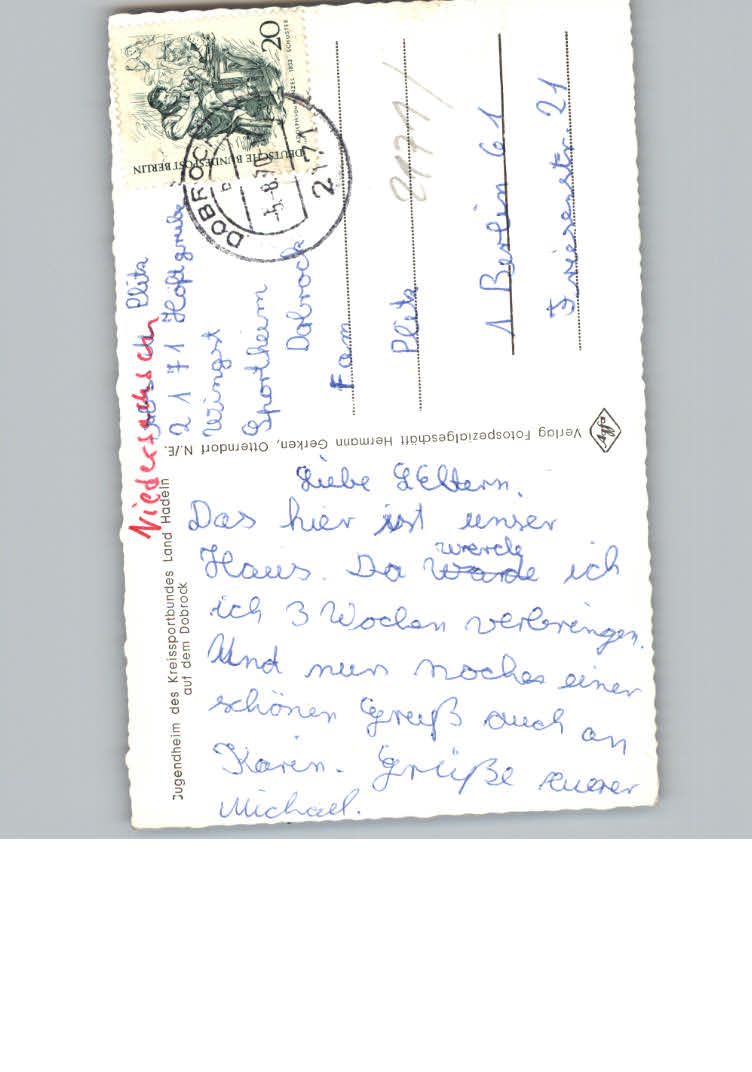 Liebe Eltern.
Das hier ist unser
Haus. Da werde ich
ich 3 Wochen verbringen.
Und nun noches einen
schönen Gruß auch an
Karin. Grüße euerer
Michael.
Jugendheim des Kreissportbundes Land Hadeln
auf dem Dobrock
Verlag Fotospezialgeschäft Hermann Gerken, Otterndorf N./E.
Niedersachsen
Plitz
2171 Höftgrube
Wingst
Sportheim
Dobrock
DEUTSCHE BUNDESPOST BERLIN
20
SCHUSTER
DOBROCK
-5.-8.70
2171
2171/
Fam
Plitz
1 Berlin 61
Friesenstr. 21